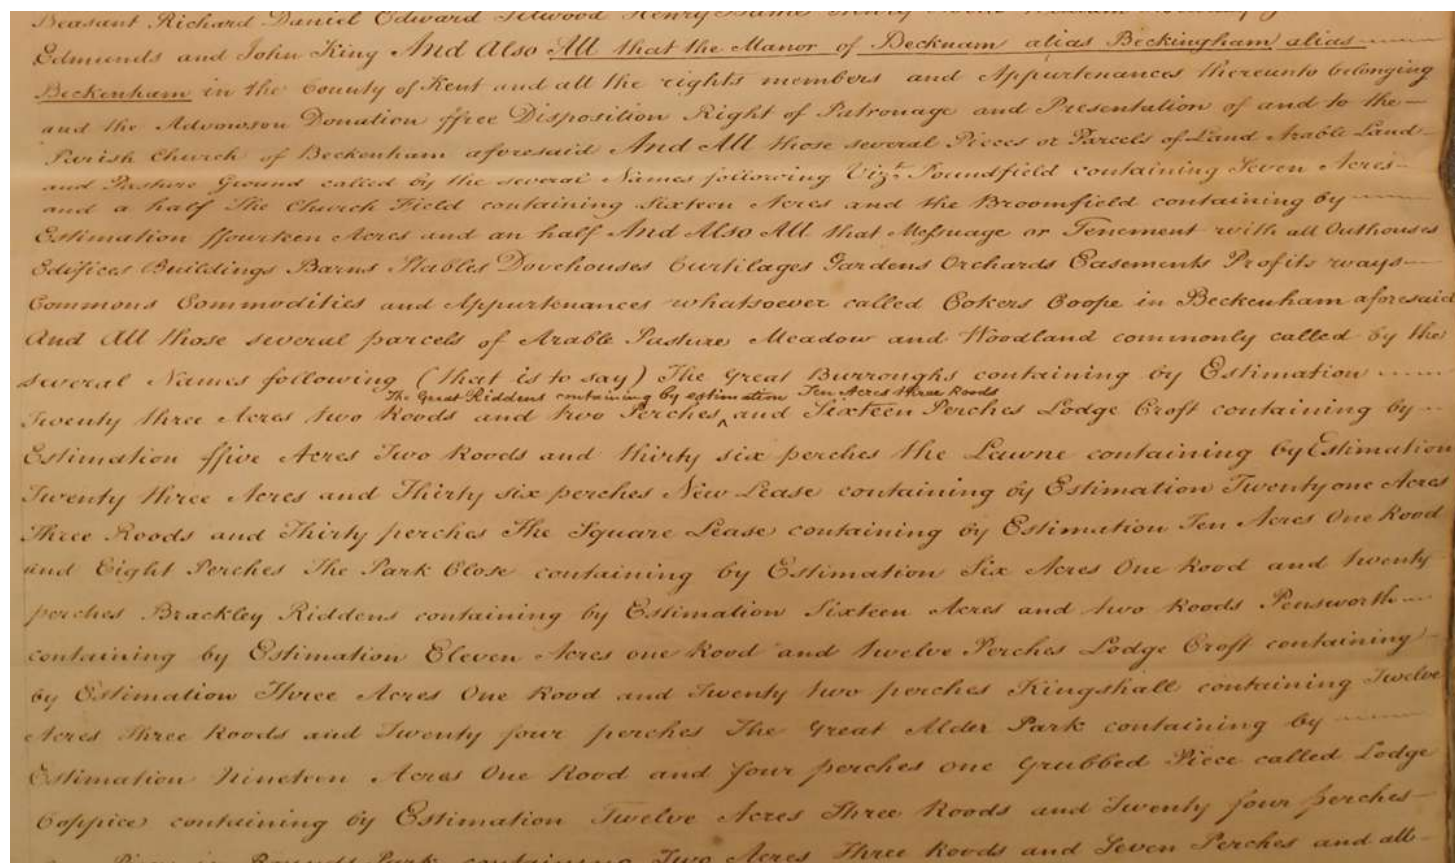 Peasant Richard Daniel Edward Henry
Edmunds and John King And Also All that the Manor of Becknam alias Beckingham alias
Beckenham in the County of Kent and all the rights members and Appurtenances thereunto belonging
and the Advowson Donation ffree Disposition Right of Patronage and Presentation of and to the
Parish Church of Beckenham aforesaid And All those several Pieces or Parcels of Land Arable Land
and Pasture Ground called by the several Names following Vizt. Poundfield containing Seven Acres
and a half The Church Field containing Sixteen Acres and the Broomfield containing by
Estimation ffourteen Acres and an half And Also All that Messuage or Tenement with all Outhouses
Edifices Buildings Barns Stables Dovehouses Curtilages Gardens Orchards Easements Profits ways
Commons Commodities and Appurtenances whatsoever called Cokers Coope in Beckenham aforesaid
And All those several parcels of Arable Pasture Meadow and Woodland commonly called by the
several Names following (that is to say) The Great Burroughs containing by Estimation
The Great Riddens containing by estimation Ten Acres three Roods
Twenty three Acres two Roods and two Perches ^ and Sixteen Perches Lodge Croft containing by
Estimation ffive Acres Two Roods and thirty six perches the Lawne containing by Estimation
Twenty three Acres and Thirty six perches New Lease containing by Estimation Twenty one Acres
Three Roods and Thirty perches The Square Lease containing by Estimation Ten Acres One Rood
and Eight Perches The Park Close containing by Estimation Six Acres One Rood and twenty
perches Brackley Riddens containing by Estimation Sixteen Acres and two Roods Pensworth
containing by Estimation Eleven Acres one Rood and twelve Perches Lodge Croft containing
by Estimation Three Acres One Rood and Twenty two perches Kingshall containing Twelve
Acres Three Roods and Twenty four perches The Great Alder Park containing by
Estimation Nineteen Acres One Rood and four perches one Grubbed Piece called Lodge
Coppice containing by Estimation Twelve Acres Three Roods and Twenty four perches
Park containing Two Acres Three Roods and Seven Perches and all